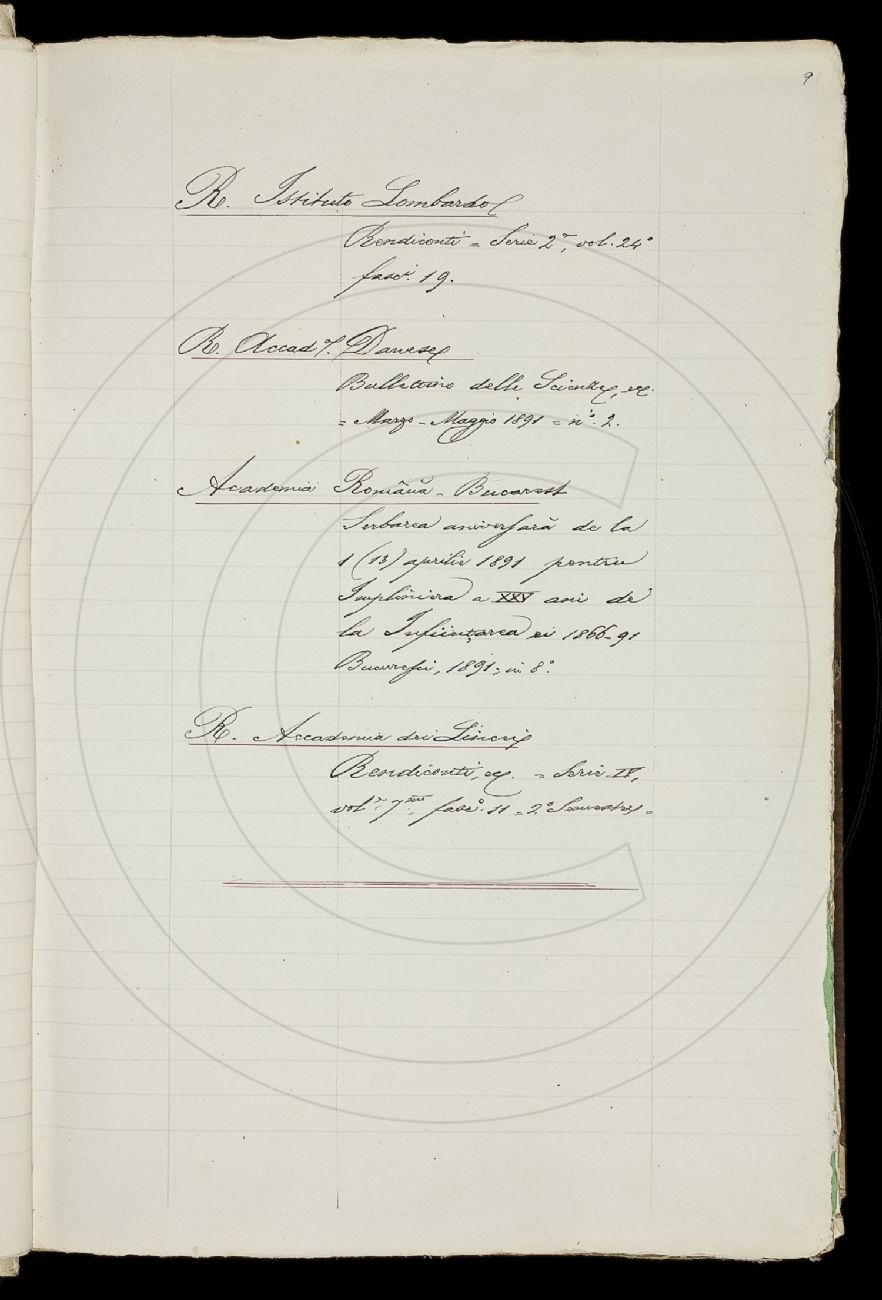 9
R. Istituto Lombardo
Rendiconti = Serie 2ª, vol. 24°
fasc°. 19.
R. Accad.ª Danese
Bullettino delle Scienze, ec.
= Marzo - Maggio 1891 = n°. 2.
Academia Română - Bucarest
Serbarea aniversară de la
1 (13) aprilie 1891 pentru
Implinirea a XXV ani de
la Inființarea ei 1866-91
Bucuresci, 1891; in 8°.
R. Accademia dei Lincei
Rendiconti, ec. = Serie IV,
vol.e 7mo, fasc°. 11 = 2° Semestre =